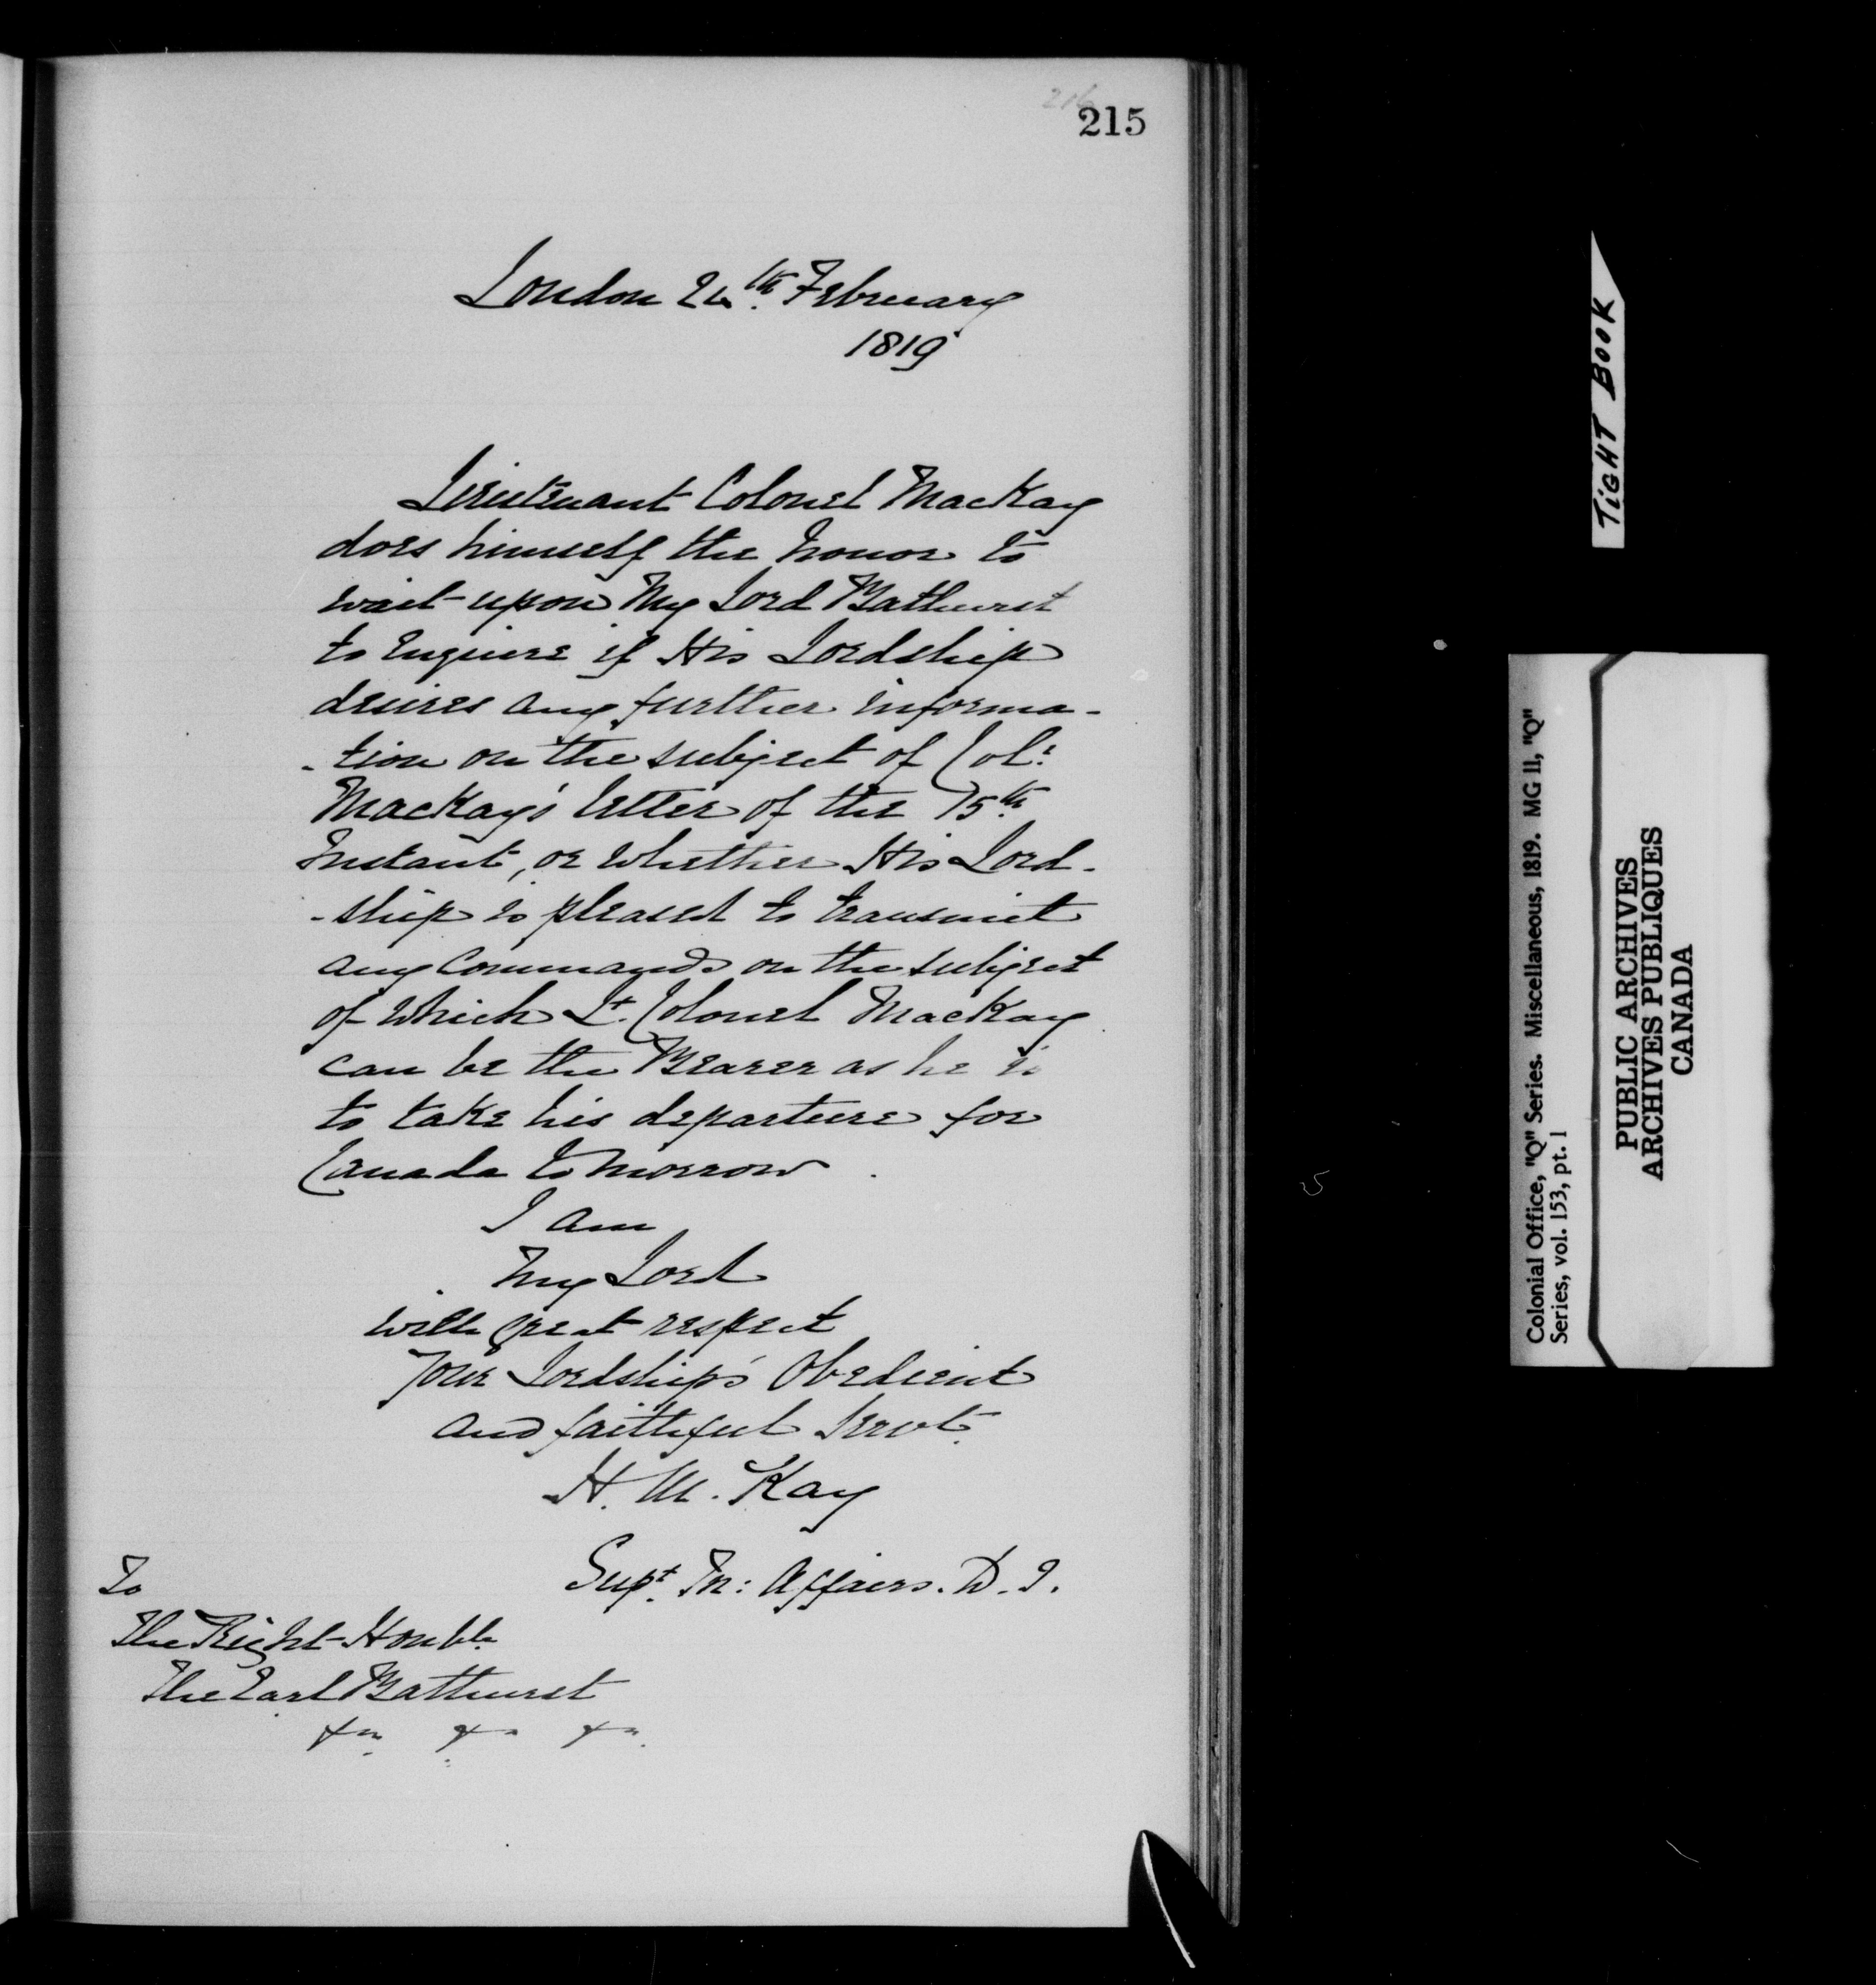 215
London 24th. February
1819
Lieutenant Colonel MacKay
does himself the honor to
wait upon My Lord Bathurst
to Enquire if His Lordship
desires any further informa-
-tion on the subject of Col:
MacKay's letter of the 15th.
Instant, or whether His Lord-
-ship is pleased to transmit
any Commands on the subject
of which Lt. Colonel MacKay
can be the Bearer as he is
to take his departure for
Canada to morrow.
I am
My Lord
with great respect
Your Lordship's Obedient
and faithful Servt.
H. M. Kay
Supt. In: Affairs. D. I.
To
The Right Honble.
The Earl Bathurst
&c. &c. &c.
TIGHT BOOK
Colonial Office, "Q" Series. Miscellaneous, 1819. MG 11, "Q"
Series, vol. 153, pt. 1
PUBLIC ARCHIVES
ARCHIVES PUBLIQUES
CANADA